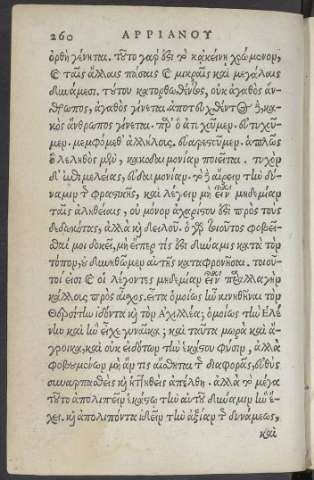 260 ΑΡΡΙΑΝΟΥ
ὀρθὴ γένηται. τούτο γάρ ὅτι τὸ κἀκείνη χρώμενον,
καὶ ταῖς ἄλλαις πάσαις καὶ μικραῖς καὶ μεγάλαις
δυνάμεσι. τούτου κατορθωθέντος, οὐκ ἀγαθὸς ἄν-
θρωπος, ἀγαθὸς γένεται. ἀποτυχθέντος, κα-
κὸς ἄνθρωπος γένεται. παρ᾽ ὃ ἀτυχοῦμεν. εὐτυχοῦ-
μεν. μεμφόμεθ᾽ ἀλλήλους. εὐαρεστοῦμεν. ἁπλῶς
ὃ λεληθὸς μὲν, κακοδαιμονίαν ποιεῖται. τυχὸν
δ᾽ ἐπιμελείας, εὐδαιμονίαν. τὸ δ᾽ αἴρειν τὴν δύ-
ναμιν τῆς φραστικῆς, καὶ λέγειν μὴ εἶναι μηδεμίαν
ταῖς ἀληθείαις, οὐ μόνον ἀχαρίστου ἐστὶ πρὸς τοὺς
δεδωκότας, ἀλλὰ καὶ δειλοῦ. ὁ γὰρ τοιοῦτος φοβεῖ-
σθαί μοι δοκεῖ, μὴ εἴπερ τίς ἐστι δύναμις κατὰ τὸν
τόπον, οὐ δυνηθῶμεν αὐτῆς καταφρονῆσαι. τοιοῦ-
τοί εἰσι καὶ οἱ λέγοντες μηδεμίαν εἶναι παραλλαγὴν
κάλλους πρὸς αἶσχος. εἶτα ὁμοίως ἦν κινηθῆναι τὸν
Θερσίτην ἰδόντα καὶ τὸν Ἀχιλλέα; ὁμοίως τὴν Ἑλέ
νην καὶ ἣν εἶχε γυναῖκα; καὶ ταῦτα μωρὰ καὶ ἄ-
γροικα, καὶ οὐκ εἰδότων τὴν ἑκάστου φύσιν, ἀλλὰ
φοβουμένων μὴ ἄν τις αἴσθηται τῆς διαφορᾶς, εὐθὺς
συναρπασθεὶς καὶ ἡττηθεὶς ἀπέλθῃ. ἀλλὰ τὸ μέγα
τοῦτο ἀπολιπεῖν ἑκάστῳ τὴν αὐτοῦ δύναμιν ἣν ἔ-
χει. καὶ ἀπολιπόντα ἰδεῖν τὴν ἀξίαν τῆς δυνάμεως,
καὶ